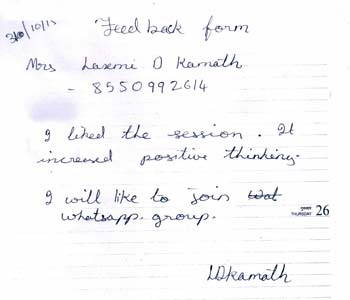 Feed back form
Mrs Laxmi D Kamath
- 8550992614
I liked the session. It
increased positive thinking.
I will like to join
whatsapp group.
THURSDAY 26
LDKamath